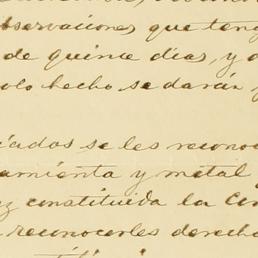 observaciones que teng
de quince dias, y
olo hecho se darán
iados se les reconoc
amienta y metal
z constituida la
reconocerles derech